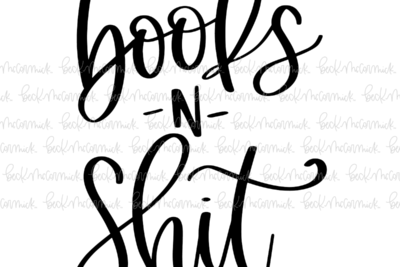 books
-N-
Shit